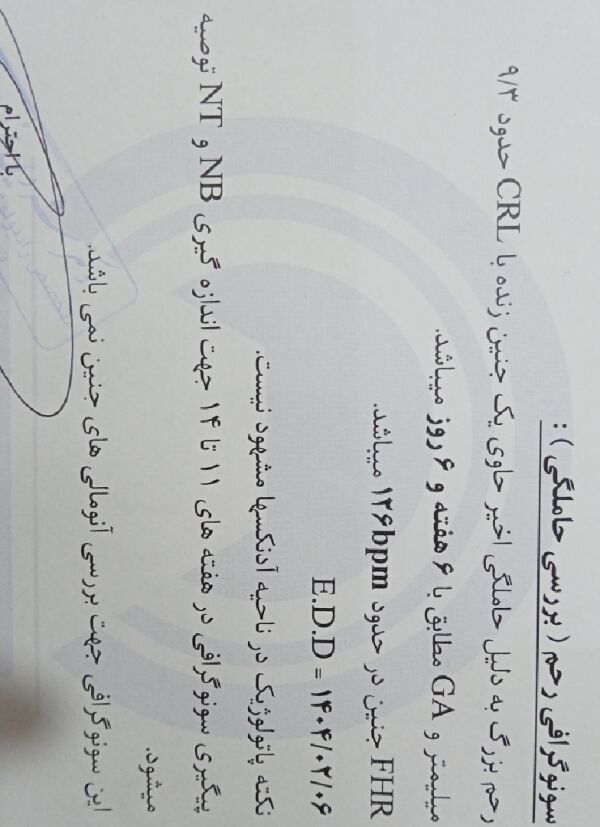 سونوگرافی رحم ( بررسی حاملگی ) :
رحم بزرگ به دلیل حاملگی اخیر حاوی یک جنین زنده با CRL حدود ۹/۳
میلیمتر و GA مطابق با ۶ هفته و ۶ روز میباشد.
FHR جنین در حدود ۱۲۶bpm میباشد.
E.D.D = ۱۴۰۴/۰۲/۰۶
نکته پاتولوژیک در ناحیه آدنکسها مشهود نیست.
پیگیری سونوگرافی در هفته های ۱۱ تا ۱۴ جهت اندازه گیری NB و NT توصیه
میشود.
این سونوگرافی جهت بررسی آنومالی های جنین نمی باشد.
با احترام